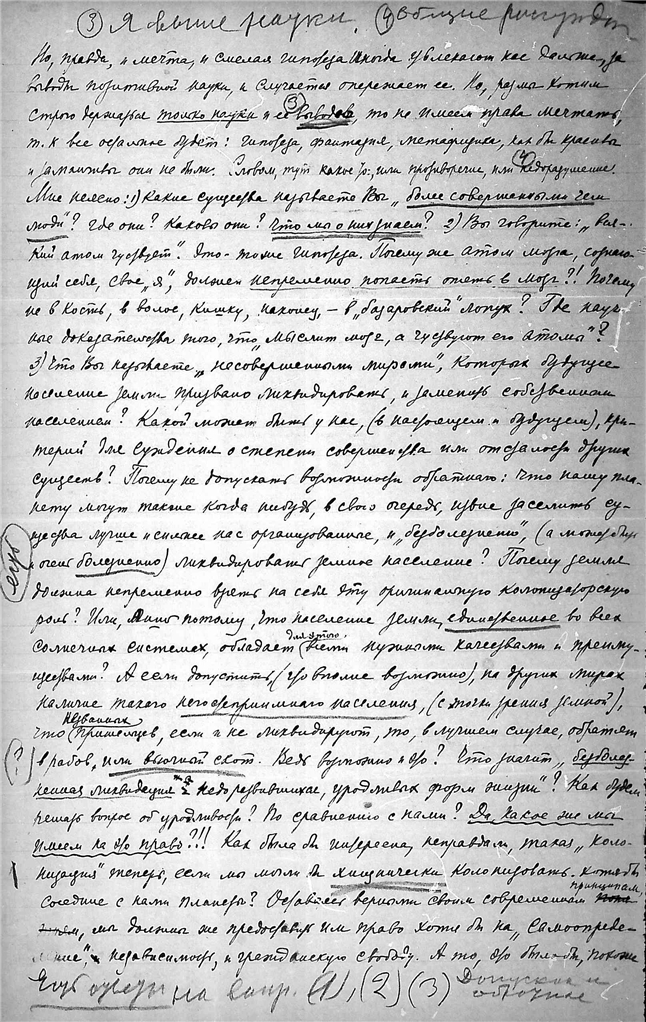 (3) Я выше науки. (4) Общие рассужден
Но, правда, и мечта, и смелая гипотеза иногда увлекают нас дальше, за
выводы позитивной науки, и случается опережает ее. Но, раз мы хотим
строго держаться только науки и ее (3) выводов, то не имеем права мечтать,
т. к. все остальное будет: гипотеза, фантазия, метафизика, как бы красивы
и заманчивы они не были. Словом, тут какое то, или противоречие, или (4) недоразумение.
Мне неясно: 1) Какие существа называете Вы „более совершенными чем
люди"? Где они? Каковы они? Что мы о них знаем? 2) Вы говорите: „вся-
кий атом чувствует". Это - тоже гипотеза. Почему же атом мозга, сознаю-
щий себя, свое „я", должен непременно попасть опять в мозг?! Почему
не в кость, в волос, кишку, наконец, – в „базаровский" лопух? Где науч-
ные доказательства того, что „мыслит мозг, а чувствуют его атомы"?
3) Что Вы называете „несовершенными мирами", которых будущее
население земли призвано ликвидировать, и заменить собственным
населением? Какой может быть у нас, (в настоящем и будущем), кри-
терий для суждения о степени совершенства или отсталости других
существ? Почему не допускать возможности обратной: что нашу пла-
нету могут также когда нибудь, в свою очередь, извне заселить су-
щества лучше и сильнее нас организованные, и „безболезненно", (а может быть
и очень болезненно) ликвидировать земное население? Почему земля
есть
должна непременно взять на себя эту оригинальную колонизаторскую
роль? Или, потому, что население земли, единственное во всех
солнечных системах, обладает для этого всеми нужными качествами и преиму-
ществами? А если допустить, (что вполне возможно), на других мирах
наличие такого негостеприимного населения, (с точки зрения земной),
что незванных пришельцев, если и не ликвидируют, то, в лучшем случае, обратят
(?) в рабов, или вьючный скот. Ведь возможно и это? Что значит „безболез-
ненная ликвидация недоразвившихся, уродливых форм жизни"? Как будем
решать вопрос об уродливости? По сравнению с нами? Да, какое же мы
имеем на это право?!!! Как была бы интересна, неправда ли, такая „коло-
низация" теперь, если мы могли бы хищнически колонизовать хотя бы
соседние с нами планеты? Оставаясь верными своим современным принципам,
мы должны же предоставить им право хотя бы на „самоопреде-
ление", независимость, и гражданскую свободу. А то, это было бы, похоже
Есть ответы на вопр. (1), (2) (3) Допускаю и
обратное